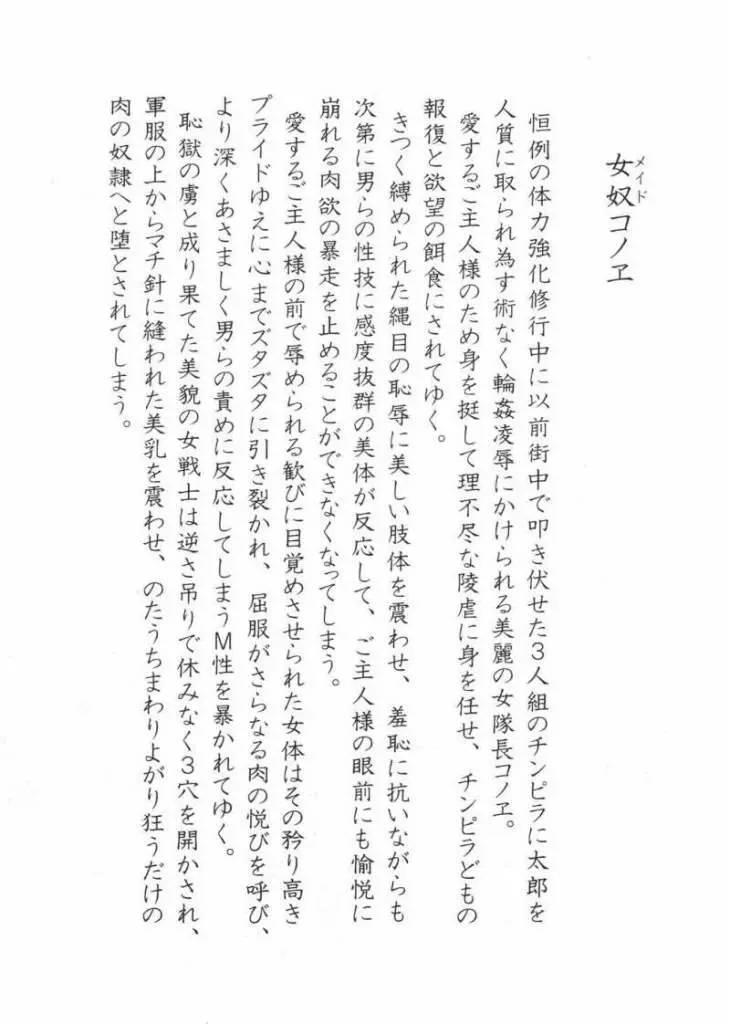 女奴コノヱ
メイド
恒例の体力強化修行中に以前街中で叩き伏せた3人組のチンピラに太郎を
人質に取られ為す術なく輪姦凌辱にかけられる美麗の女隊長コノヱ。
愛するご主人様のため身を挺して理不尽な陵虐に身を任せ、チンピラどもの
報復と欲望の餌食にされてゆく。
きつく縛められた縄目の恥辱に美しい肢体を震わせ、羞恥に抗いながらも
次第に男らの性技に感度抜群の美体が反応して、ご主人様の眼前にも愉悦に
崩れる肉欲の暴走を止めることができなくなってしまう。
愛するご主人様の前で辱められる歓びに目覚めさせられた女体はその矜り高き
プライドゆえに心までズタズタに引き裂かれ、屈服がさらなる肉の悦びを呼び、
より深くあさましく男らの責めに反応してしまうM性を暴かれてゆく。
恥獄の虜と成り果てた美貌の女戦士は逆さ吊りで休みなく3穴を開かされ、
軍服の上からマチ針に縫われた美乳を震わせ、のたうちまわりよがり狂うだけの
肉の奴隷へと堕とされてしまう。